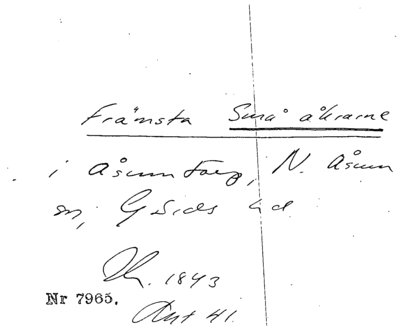 Främsta Små åkrarne
i Åsumtorp, N. Åsum
sn, Gärds hd
Lm. 1843
Nr 7965.
Akt 41.